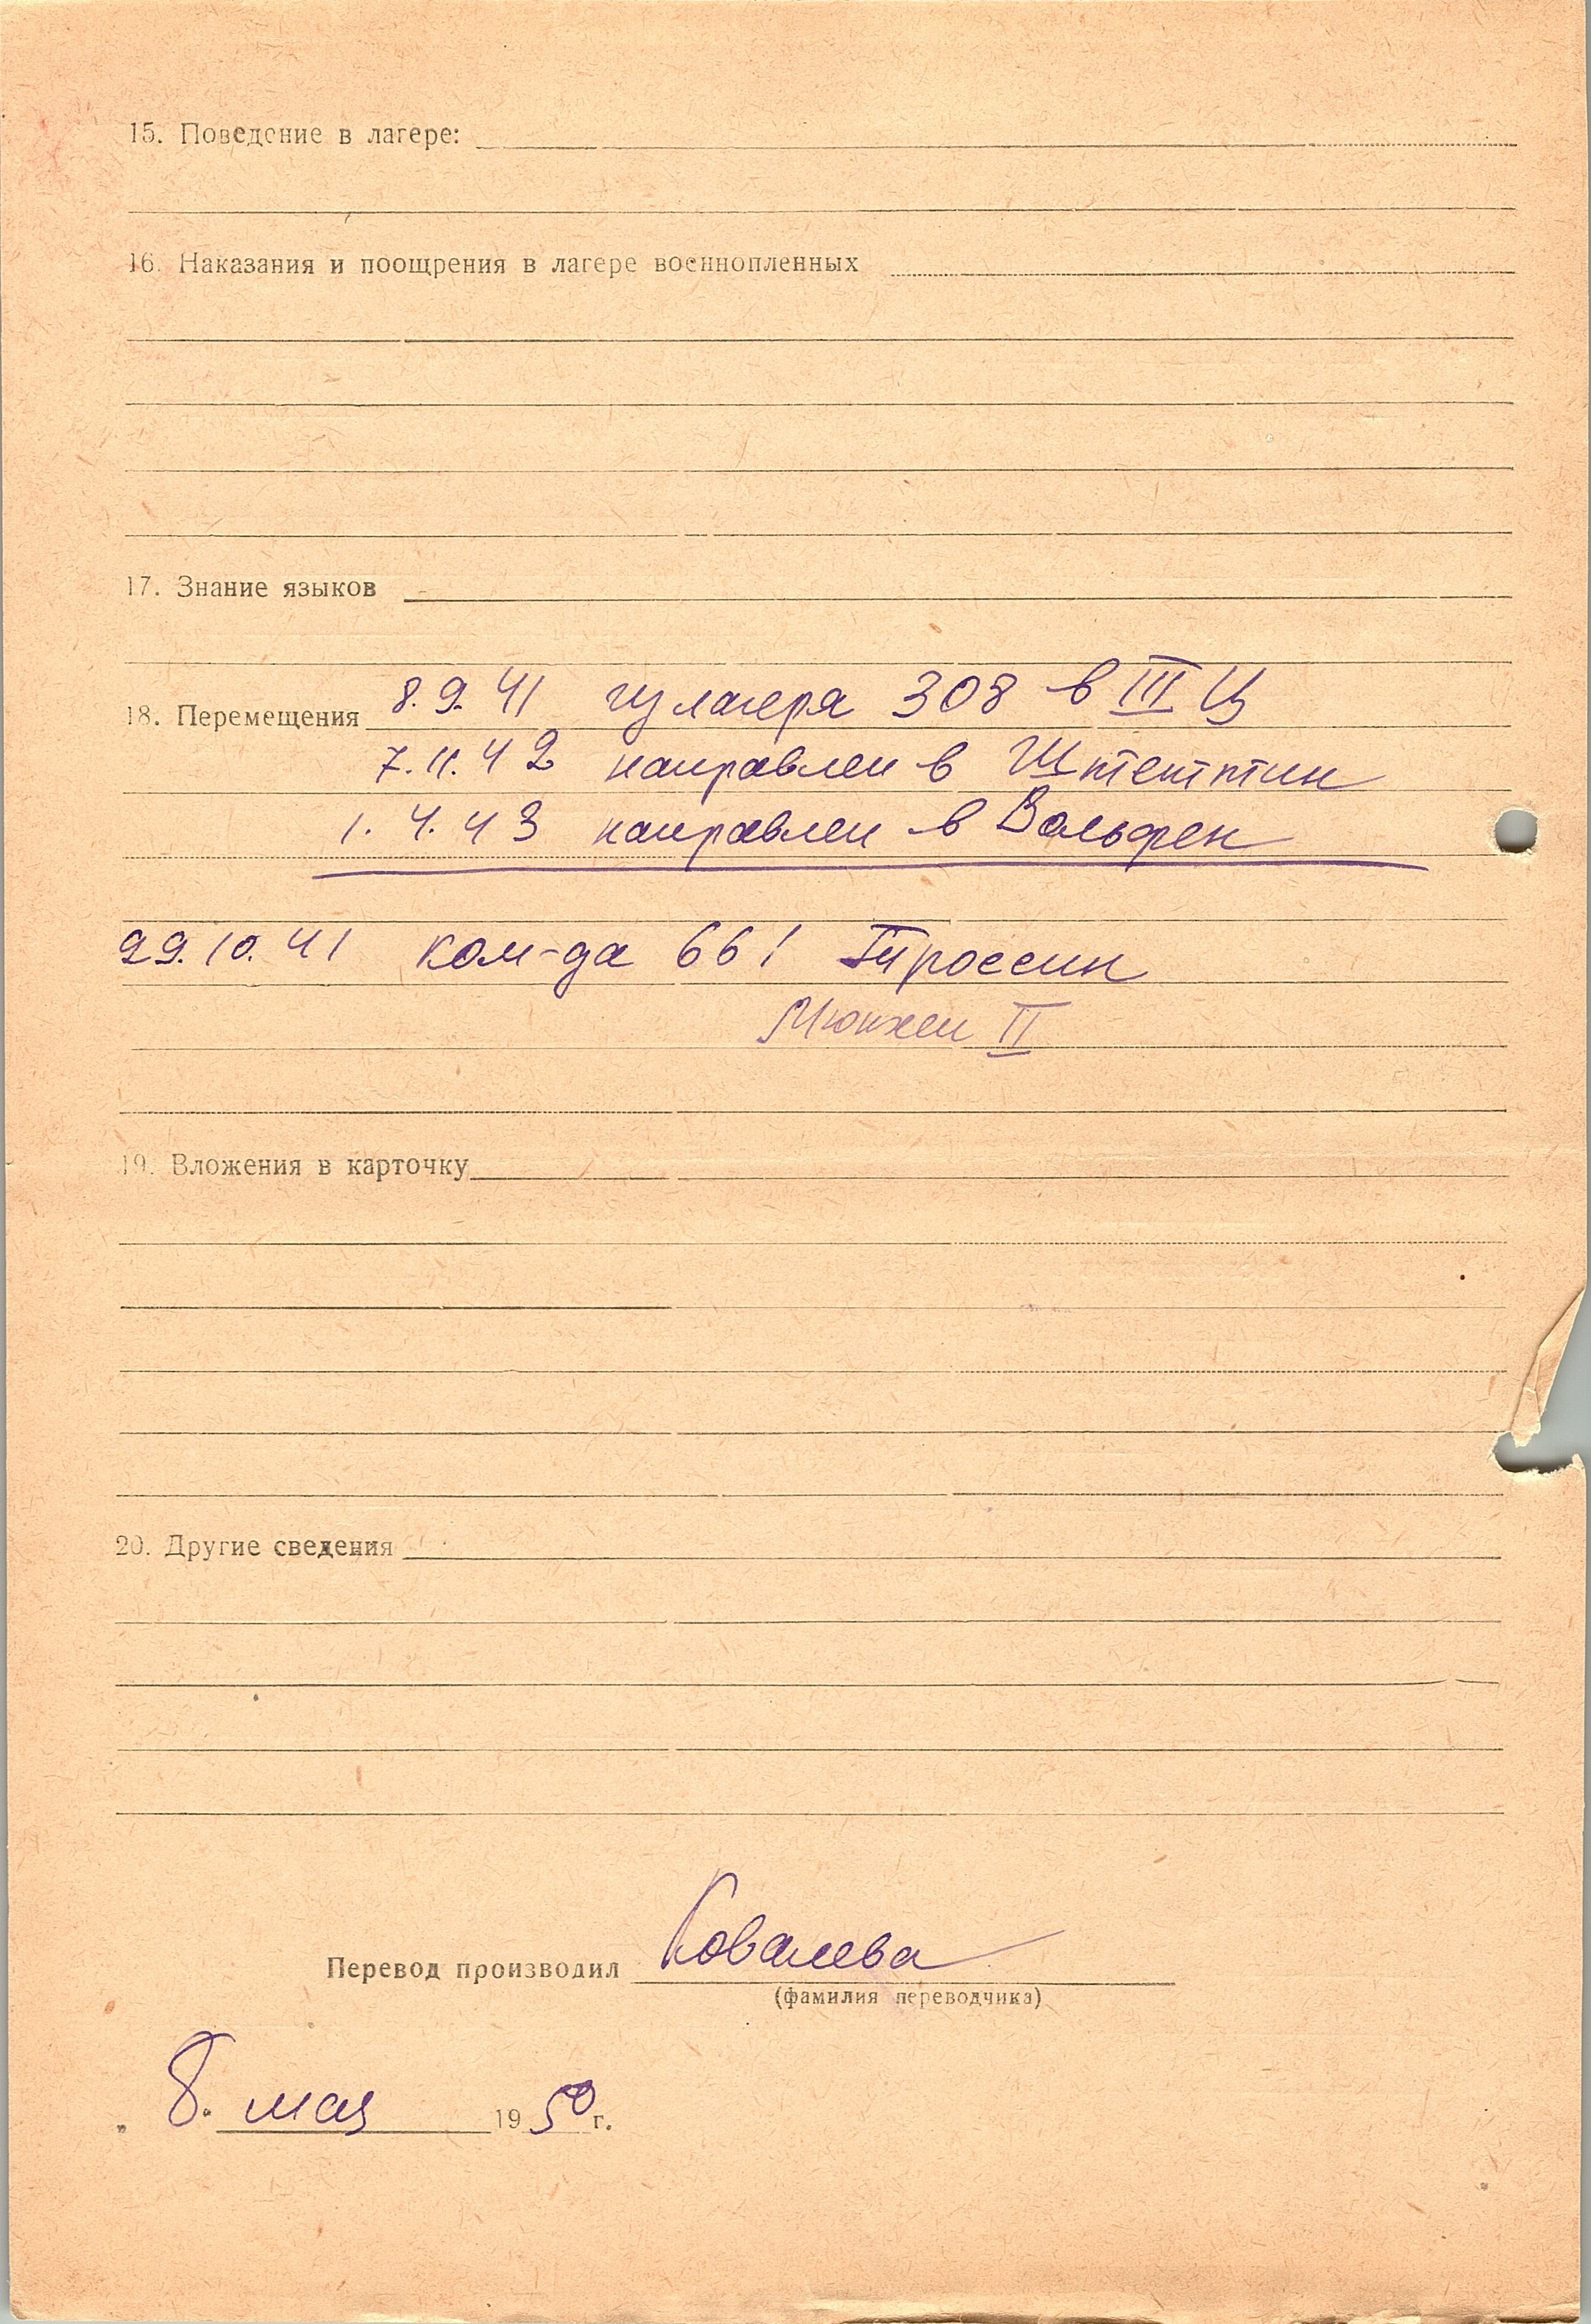 15. Поведение в лагере:
16. Наказания и поощрения в лагере военнопленных
17. Знание языков
18. Перемещения 8.9.41 из лагеря 308 в III Ц
7.11.42 направлен в Штеттин
1.4.43 направлен в Вольфен
29.10.41 ком-да 661 Троссин
Мюнхен II
19. Вложения в карточку
20. Другие сведения
Перевод производил Ковалева
(фамилия переводчика)
„ 8. мая 1950 г.